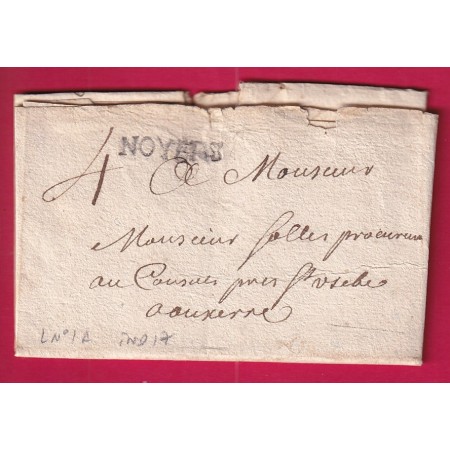 4 NOYERS
A Monsieur
Monsieur Solles procureur
au Consuls pres St Usebe
a auxerre
L N° 1 A IND 17